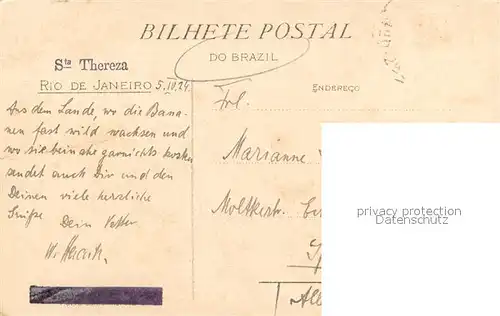 BILHETE POSTAL
DO BRAZIL
Sta Thereza
RIO DE JANEIRO 5.IV.24
ENDEREÇO
Aus dem Lande, wo die Bana-
nen fast wild wachsen und
wo sie beinahe garnichts kosten
sendet auch Dir und den
Deinen viele herzliche
Grüße
Dein Vetter
Frl.
Marianne
Moltkestr.
privacy protection
Datenschutz